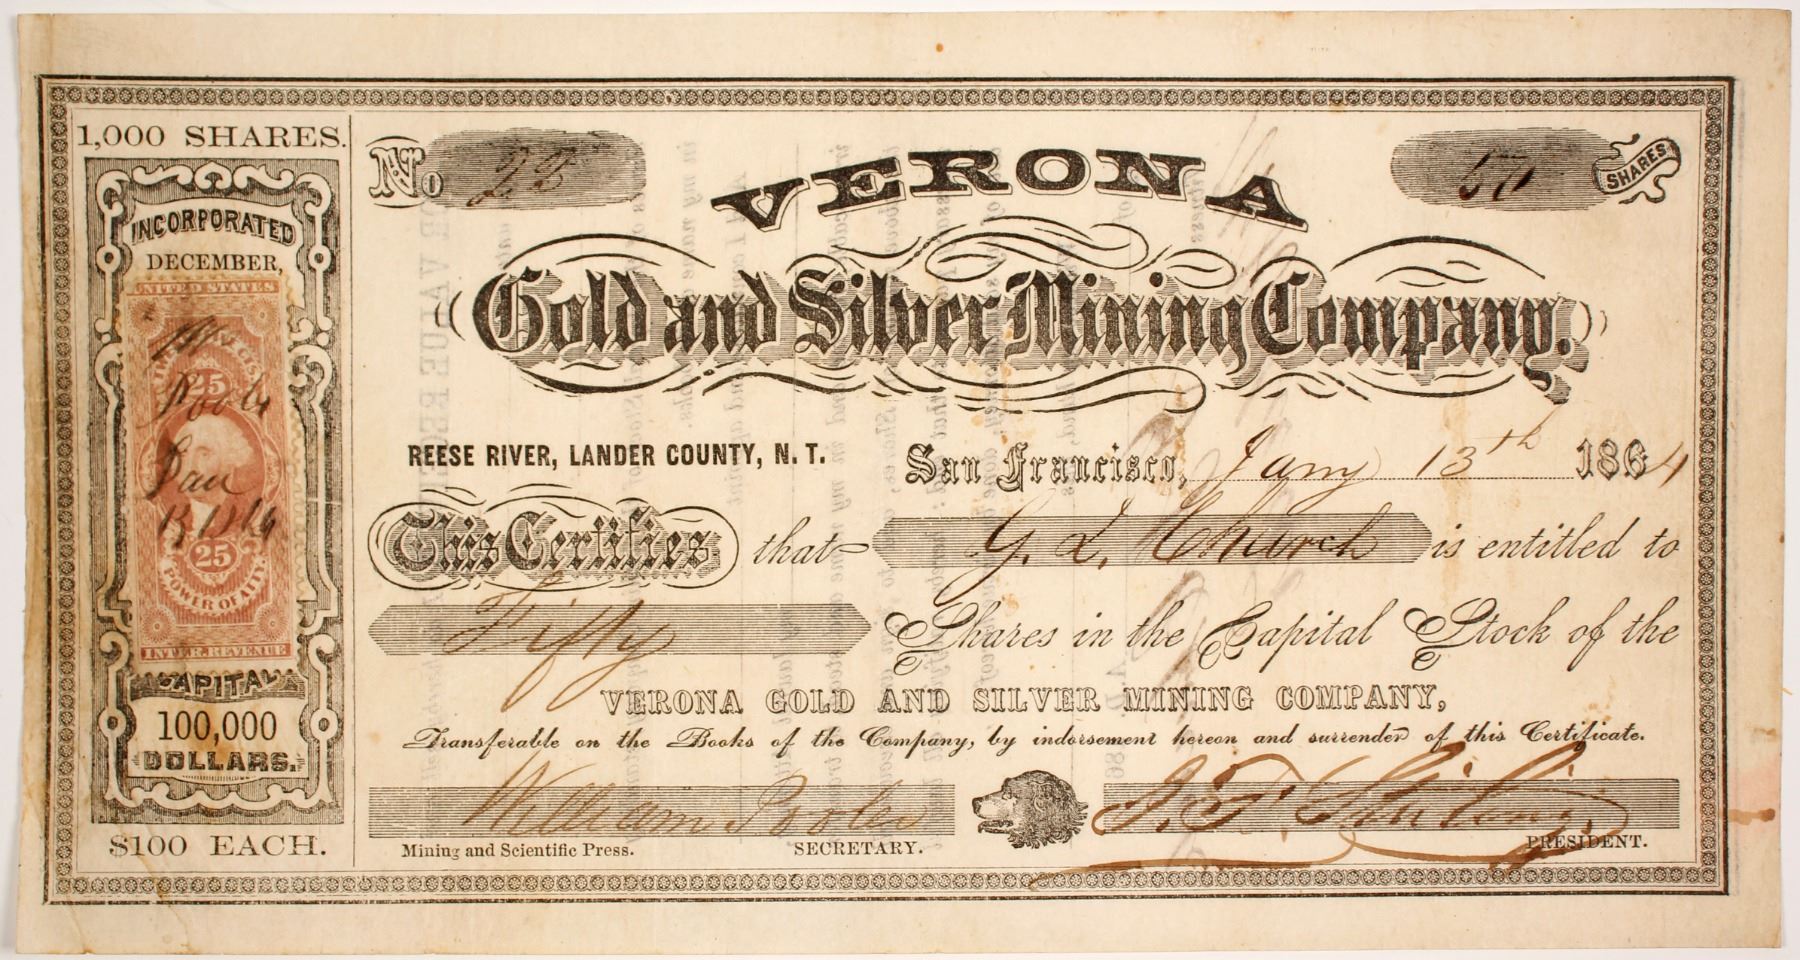 1,000 SHARES.
INCORPORATED
DECEMBER,
UNITED STATES
25
Wm
Poole
Jan
13 1864
25
POWER OF ATT'Y.
INTER. REVENUE
CAPITAL
100,000
DOLLARS.
$100 EACH.
No 23
50 SHARES
VERONA
Gold and Silver Mining Company.
REESE RIVER, LANDER COUNTY, N. T.
San Francisco, Jany 13th 1864
This Certifies that G. L. Church is entitled to
Fifty Shares in the Capital Stock of the
VERONA GOLD AND SILVER MINING COMPANY,
Transferable on the Books of the Company, by indorsement hereon and surrender of this Certificate.
William Poole
Mining and Scientific Press.
SECRETARY.
PRESIDENT.